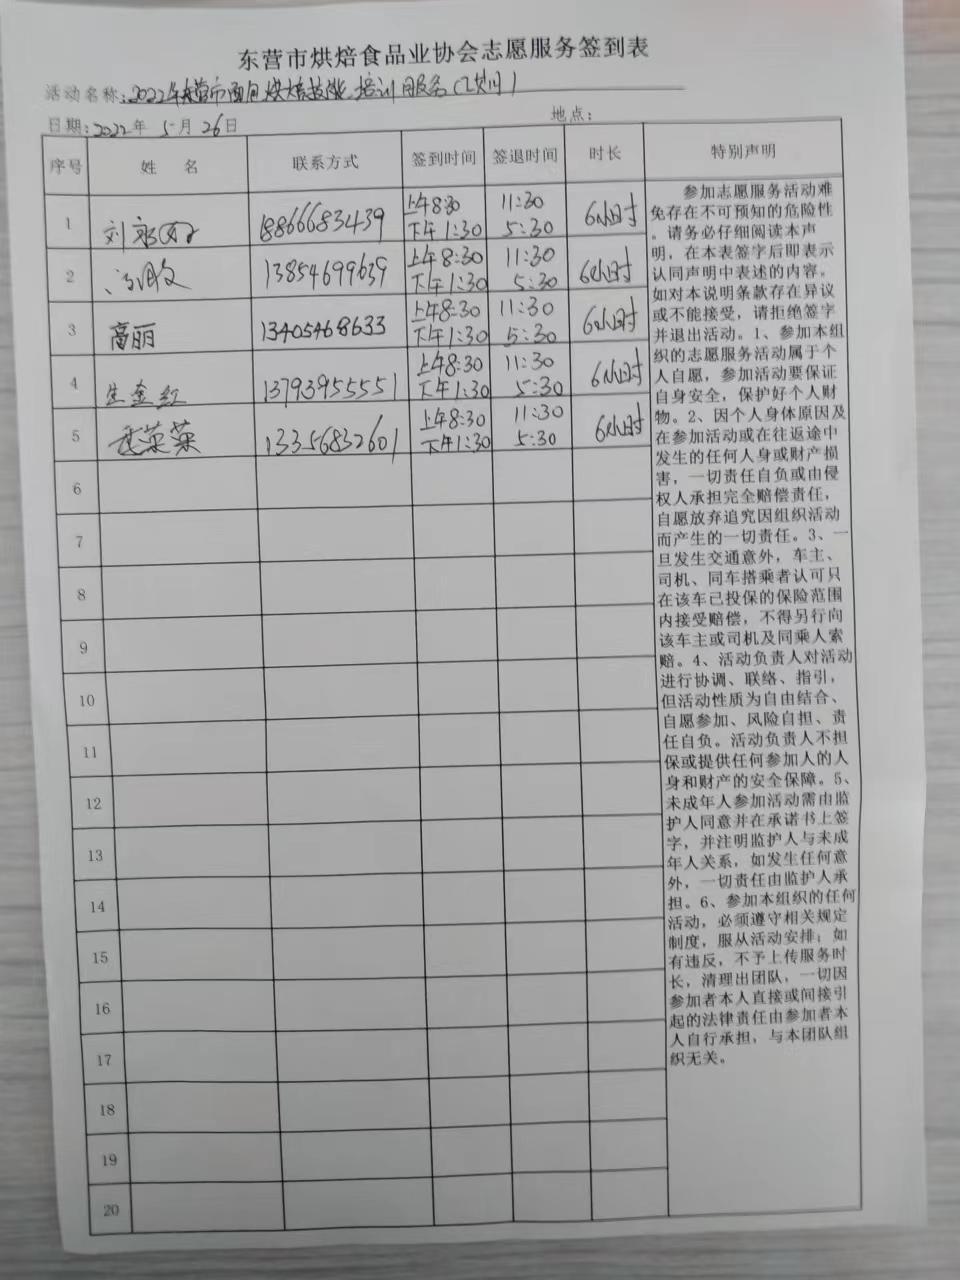 东营市烘焙食品业协会志愿服务签到表
活动名称:2022年东营市面包烘焙技能培训服务
日期:2022年 5月 26日 地点:
序号 姓 名 联系方式 签到时间 签退时间 时长 特别声明
1 刘 18866683439 上午8:30 11:30 6小时
下午1:30 5:30
2 13854699639 上午8:30 11:30 6小时
下午1:30 5:30
3 高丽 13405468633 上午8:30 11:30 6小时
下午1:30 5:30
4 生金红 13793955551 上午8:30 11:30 6小时
下午1:30 5:30
5 武荣荣 13356832601 上午8:30 11:30 6小时
下午1:30 5:30
6
7
8
9
10
11
12
13
14
15
16
17
18
19
20
参加志愿服务活动难
免存在不可预知的危险性
。请务必仔细阅读本声
明，在本表签字后即表示
认同声明中表述的内容。
如对本说明条款存在异议
或不能接受，请拒绝签字
并退出活动。1、参加本组
织的志愿服务活动属于个
人自愿，参加活动要保证
自身安全，保护好个人财
物。2、因个人身体原因及
在参加活动或在往返途中
发生的任何人身或财产损
害，一切责任自负或由侵
权人承担完全赔偿责任，
自愿放弃追究因组织活动
而产生的一切责任。3、一
旦发生交通意外，车主、
司机、同车搭乘者认可只
在该车已投保的保险范围
内接受赔偿，不得另行向
该车主或司机及同乘人索
赔。4、活动负责人对活动
进行协调、联络、指引，
但活动性质为自由结合、
自愿参加、风险自担、责
任自负。活动负责人不担
保或提供任何参加人的人
身和财产的安全保障。5、
未成年人参加活动需由监
护人同意并在承诺书上签
字，并注明监护人与未成
年人关系，如发生任何意
外，一切责任由监护人承
担。6、参加本组织的任何
活动，必须遵守相关规定
制度，服从活动安排；如
有违反，不予上传服务时
长，清理出团队，一切因
参加者本人直接或间接引
起的法律责任由参加者本
人自行承担，与本团队组
织无关。